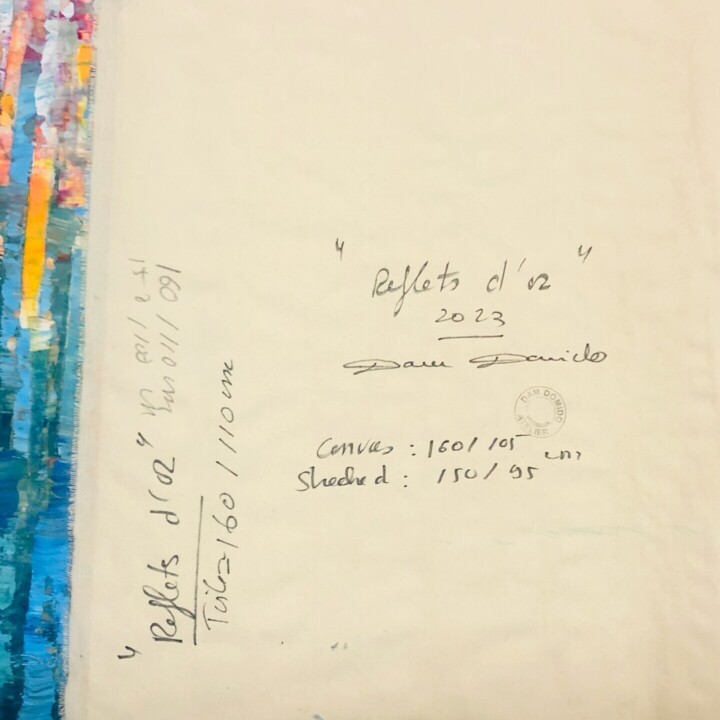 " Reflets d'or "
2023
Dam Domido
DAM DOMIDO
ATELIER
Canvas : 160/105 cm
Streched : 150/95
" Reflets d'or "
Toile=160/110 cm
160/110 cm